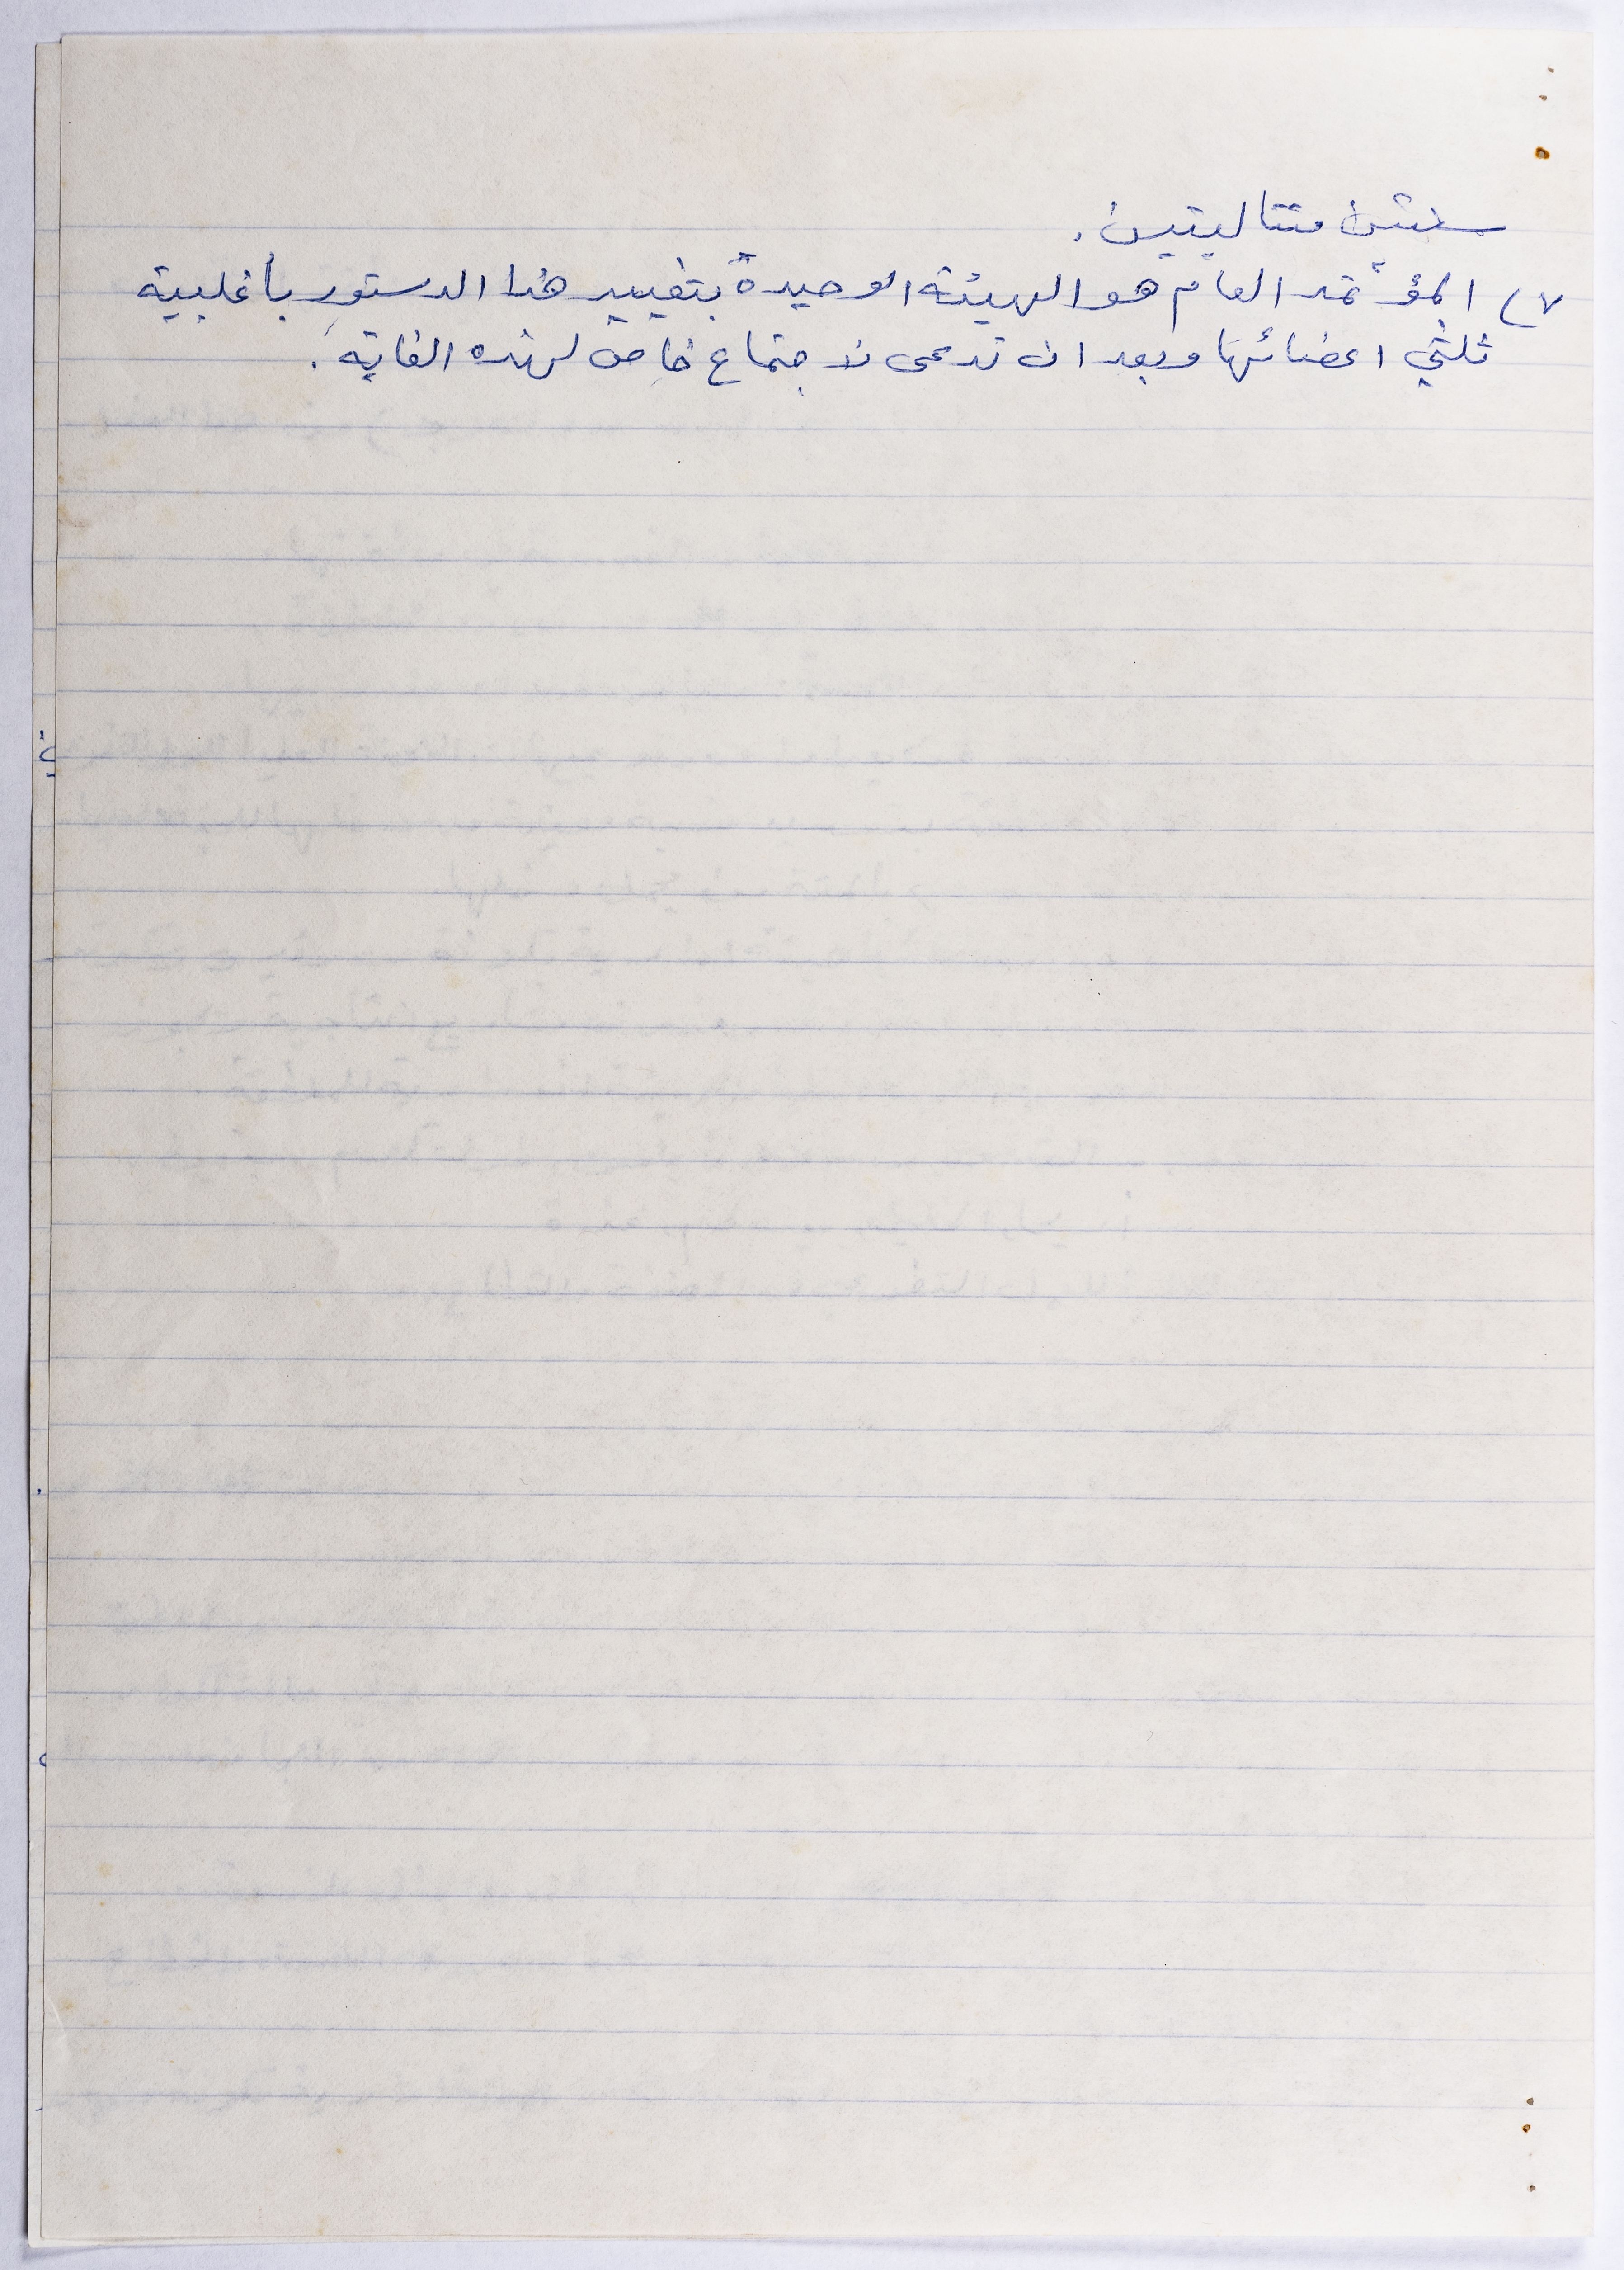 سنتين متتاليتين.
٧) المؤتمر العام هو الهيئة الوحيدة بتغيير هذا الدستور بأغلبية
ثلثي اعضائها وبعد ان تدعى لاجتماع خاص لهذه الغاية.